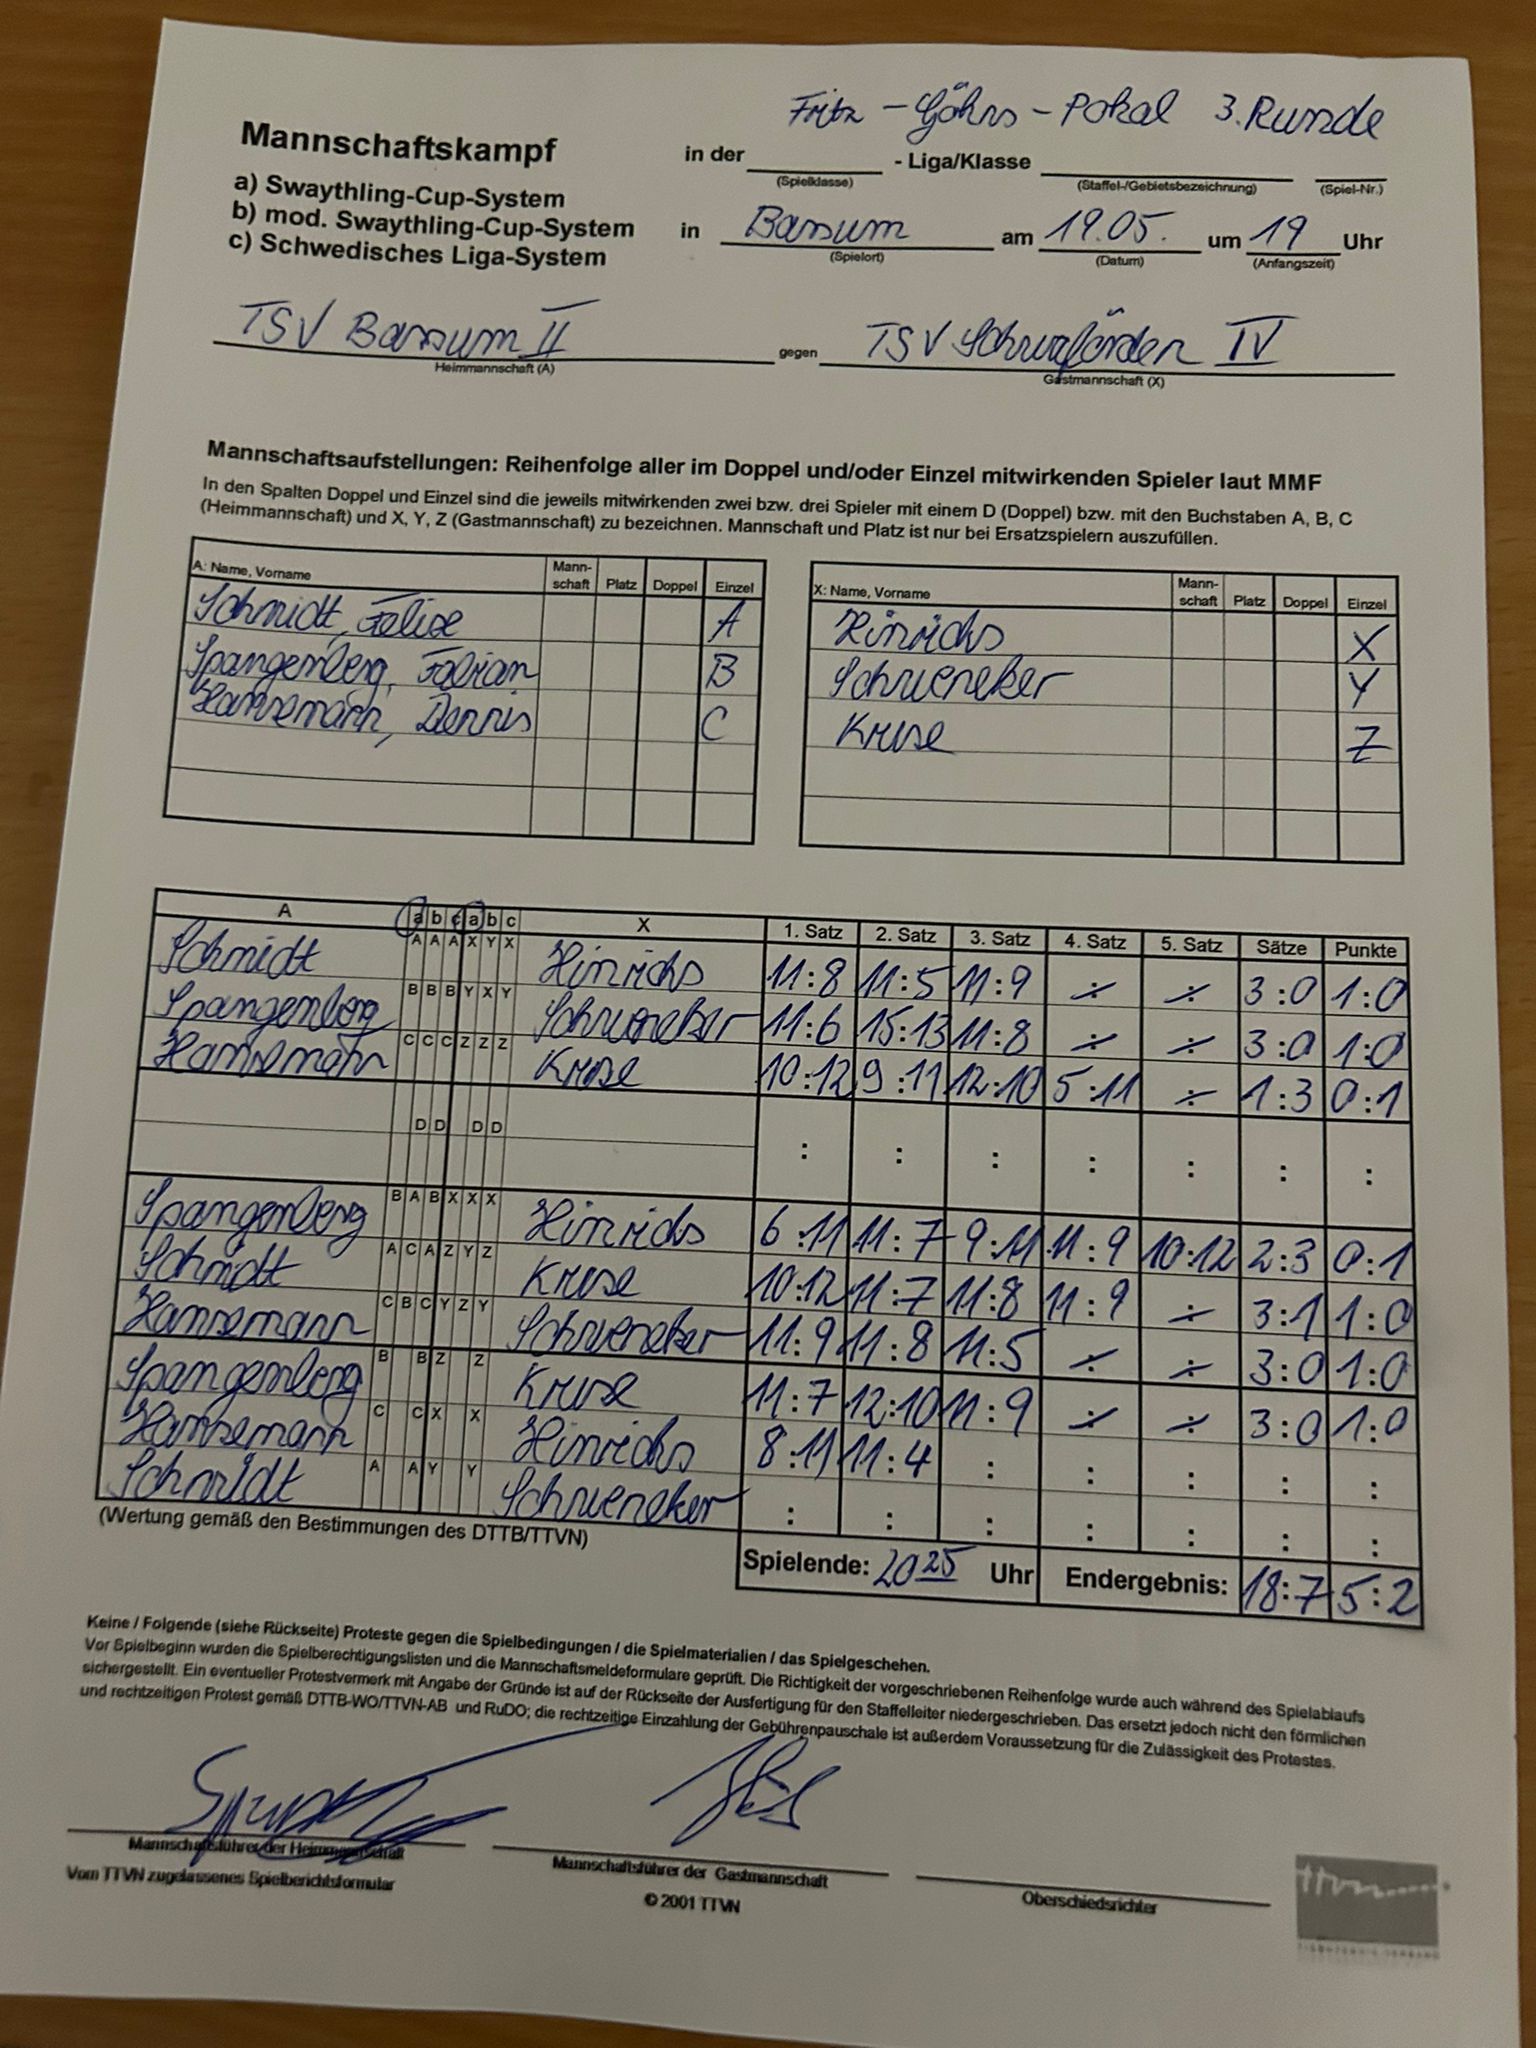 Fritz - Göhrs - Pokal 3. Runde
Mannschaftskampf
in der - Liga/Klasse
(Spielklasse) (Staffel-/Gebietsbezeichnung) (Spiel-Nr.)
a) Swaythling-Cup-System
b) mod. Swaythling-Cup-System
c) Schwedisches Liga-System
in Bassum am 19.05. um 19 Uhr
(Spielort) (Datum) (Anfangszeit)
TSV Bassum II gegen TSV Schwaförden IV
Heimmannschaft (A) Gastmannschaft (X)
Mannschaftsaufstellungen: Reihenfolge aller im Doppel und/oder Einzel mitwirkenden Spieler laut MMF
In den Spalten Doppel und Einzel sind die jeweils mitwirkenden zwei bzw. drei Spieler mit einem D (Doppel) bzw. mit den Buchstaben A, B, C
(Heimmannschaft) und X, Y, Z (Gastmannschaft) zu bezeichnen. Mannschaft und Platz ist nur bei Ersatzspielern auszufüllen.
A: Name, Vorname Mann-schaft Platz Doppel Einzel
Schmidt, Felix A
Spangenberg, Fabian B
Hannemann, Dennis C
X: Name, Vorname Mann-schaft Platz Doppel Einzel
Hinrichs X
Schweneker Y
Kruse Z
A a b c a b c X 1. Satz 2. Satz 3. Satz 4. Satz 5. Satz Sätze Punkte
Schmidt A A A X Y X Hinrichs 11:8 11:5 11:9 ÷ ÷ 3:0 1:0
Spangenberg B B B Y X Y Schweneker 11:6 15:13 11:8 ÷ ÷ 3:0 1:0
Hannemann C C C Z Z Z Kruse 10:12 9:11 12:10 5:11 ÷ 1:3 0:1
D D D D : : : : : : :
Spangenberg B A B X X X Hinrichs 6:11 11:7 9:11 11:9 10:12 2:3 0:1
Schmidt A C A Z Y Z Kruse 10:12 11:7 11:8 11:9 ÷ 3:1 1:0
Hannemann C B C Y Z Y Schweneker 11:9 11:8 11:5 ÷ ÷ 3:0 1:0
Spangenberg B B Z Z Kruse 11:7 12:10 11:9 ÷ ÷ 3:0 1:0
Hannemann C C X X Hinrichs 8:11 11:4 : : : : :
Schmidt A A Y Y Schweneker : : : : : : :
(Wertung gemäß den Bestimmungen des DTTB/TTVN)
Spielende: 20 25 Uhr Endergebnis: 18:7 5:2
Keine / Folgende (siehe Rückseite) Proteste gegen die Spielbedingungen / die Spielmaterialien / das Spielgeschehen.
Vor Spielbeginn wurden die Spielberechtigungslisten und die Mannschaftsmeldeformulare geprüft. Die Richtigkeit der vorgeschriebenen Reihenfolge wurde auch während des Spielablaufs
sichergestellt. Ein eventueller Protestvermerk mit Angabe der Gründe ist auf der Rückseite der Ausfertigung für den Staffelleiter niedergeschrieben. Das ersetzt jedoch nicht den förmlichen
und rechtzeitigen Protest gemäß DTTB-WO/TTVN-AB und RuDO; die rechtzeitige Einzahlung der Gebührenpauschale ist außerdem Voraussetzung für die Zulässigkeit des Protestes.
Mannschaftsführer der Heimmannschaft
Mannschaftsführer der Gastmannschaft
Oberschiedsrichter
Vom TTVN zugelassenes Spielberichtsformular
© 2001 TTVN
ttvn